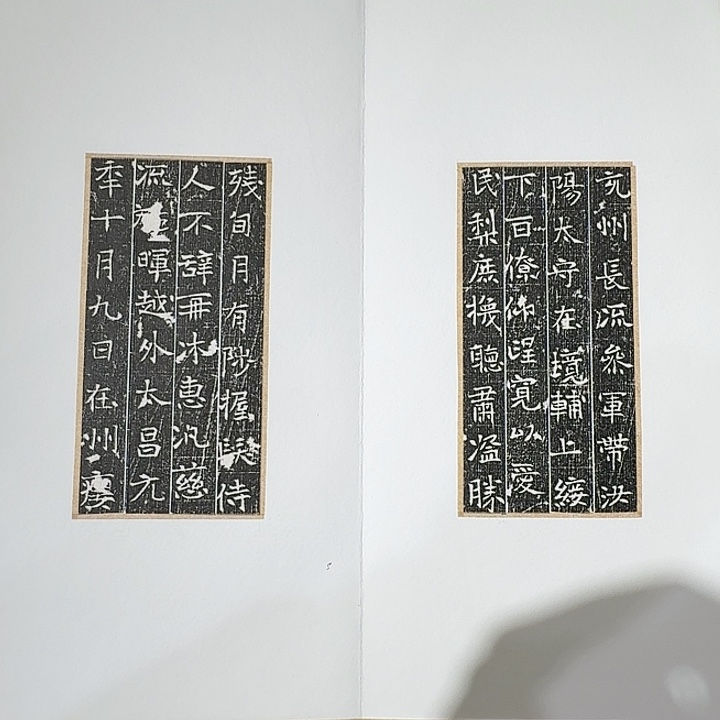 兖州長流叅軍帶汝
陽太守在境輔上綏
下百僚仰寬以愛
民梨庶機聽肅溢勝
殘旬月有陟握髮侍
人不辭再沐惠汎慈
流暉越外太昌元
年十月九日在州